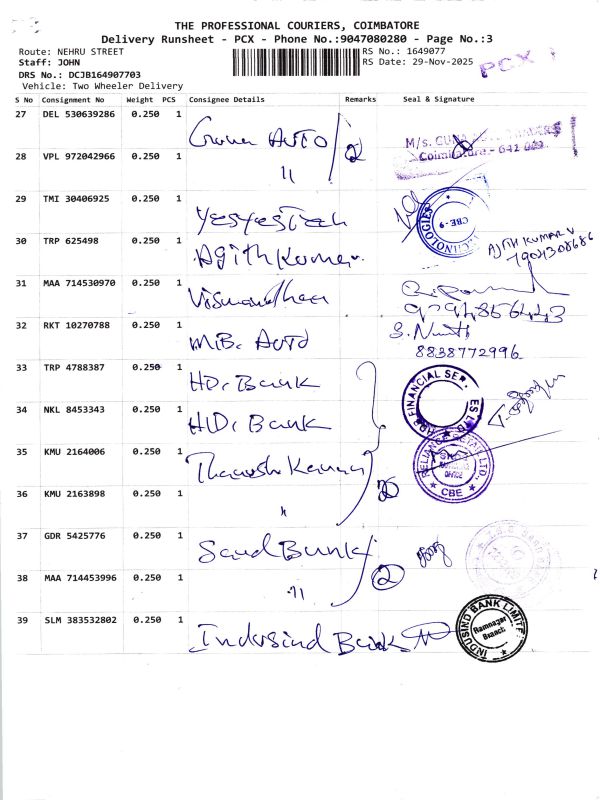 THE PROFESSIONAL COURIERS, COIMBATORE
Delivery Runsheet - PCX - Phone No.:9047080280 - Page No.:3
Route: NEHRU STREET
RS No.: 1649077
Staff: JOHN
RS Date: 29-Nov-2025
PCX
DRS No.: DCJB164907703
Vehicle: Two Wheeler Delivery
S No Consignment No Weight PCS Consignee Details Remarks Seal & Signature
27 DEL 530639286 0.250 1 Auto 2 M/s.
Coimbatore - 641 009.
28 VPL 972042966 0.250 1 "
29 TMI 30406925 0.250 1 Yesyestech TECHNOLOGIES CBE-9
30 TRP 625498 0.250 1 Agith Kumar. AJITH KUMAR V
7904308686
31 MAA 714530970 0.250 1
32 RKT 10270788 0.250 1 M.B. Auto
8838772996
33 TRP 4788387 0.250 1 HD. Bank HDB FINANCIAL SER ES LTD
34 NKL 8453343 0.250 1 HD. Bank
35 KMU 2164006 0.250 1 RELIANCE RETAIL LTD. CBE
36 KMU 2163898 0.250 1 "
37 GDR 5425776 0.250 1 Bank
38 MAA 714453996 0.250 1 " 2
39 SLM 383532802 0.250 1 Indusind Bank INDUSIND BANK LIMITED Ramnagar Branch